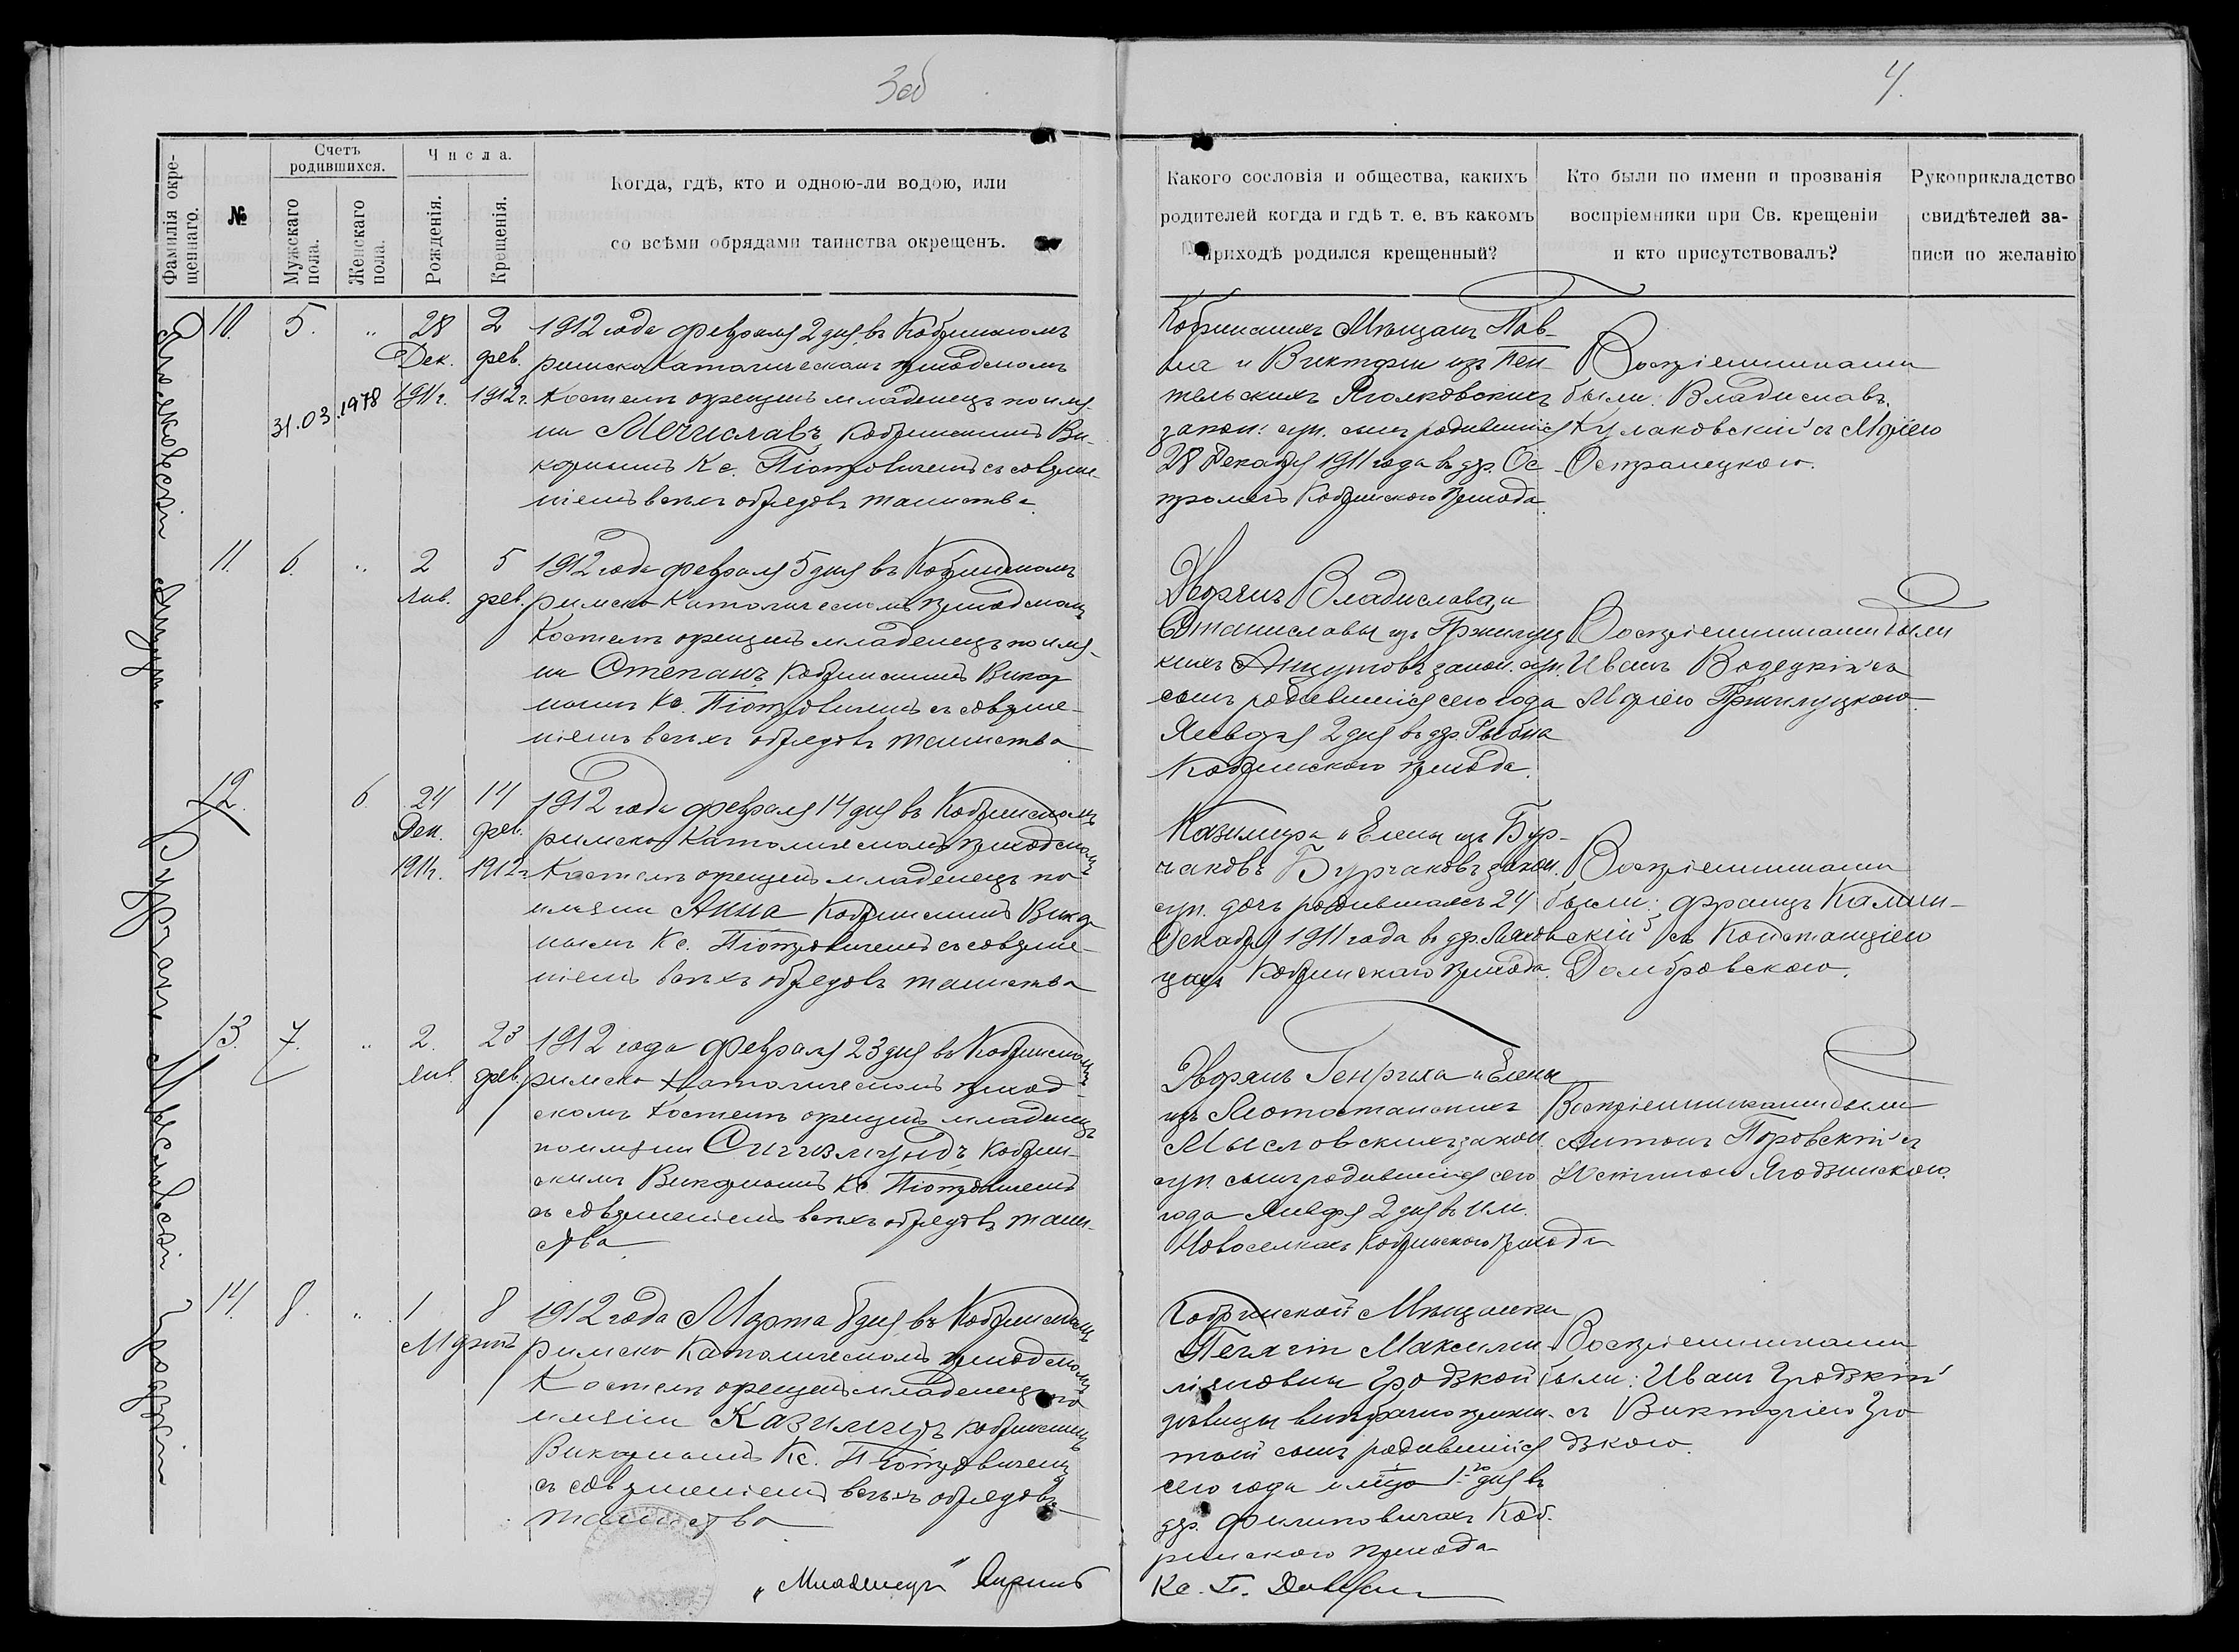 3об
4.
Фамилія окре-
щеннаго.
№
Счетъ
родившихся.
Мужскаго
пола.
Женскаго
пола.
Числа.
Рожденія.
Крещенія.
Когда, гдѣ, кто и одною-ли водою, или
со всѣми обрядами таинства окрещенъ.
Какого сословія и общества, какихъ
родителей когда и гдѣ т. е. въ какомъ
приходѣ родился крещенный?
Кто были по имени и прозванія
воспріемники при Св. крещеніи
и кто присутствовалъ?
Рукоприкладство
свидѣтелей за-
писи по желанію
10. 5. " 28 2
Дек. фев.
1911г. 1912г.
31.03.1978
1912 года февраля 2 дня въ Кобринскомъ
римско Католическомъ приходскомъ
Костелѣ окрещенъ младенецъ по имя-
ни Мечиславъ Кобринскимъ Ви-
карнымъ Кс. Піотровичемъ съ соверше-
ніемъ всѣхъ обрядовъ таинства.
Кобринскихъ Мѣщанъ Пав-
ла и Викторіи изъ Пен-
тельскихъ
закон. суп. сынъ родившійся
28 Декабря 1911 года въ дер. Ос-
Кобринскаго прихода.
Воспріемниками
были: Владиславъ
Кулаковскій съ Маріею
Островецкою.
11. 6. " 2 5
Янв. фев.
1912 года февраля 5 дня въ Кобринскомъ
римско Католическомъ приходскомъ
Костелѣ окрещенъ младенецъ по имя-
ни Степанъ Кобринскимъ Викар
нымъ Кс. Піотровичемъ съ соверше-
ніемъ всѣхъ обрядовъ таинства
Дворянъ Владислава и
Станиславы изъ Гржилуц
кихъ Анцутовъ закон. суп.
сынъ родившійся сего года
Января 2 дня въ дер. Рыбна
Кобринскаго прихода.
Воспріемниками были
Иванъ Водецкій съ
Маріею Гржилуцкою.
12. 6. 24 14
Дек. фев.
1911г. 1912г.
1912 года февраля 14 дня въ Кобринскомъ
римско Католическомъ приходскомъ
Костелѣ окрещенъ младенецъ по
имяни Анна Кобринскимъ Викар
нымъ Кс. Піотровичемъ съ соверше-
ніемъ всѣхъ обрядовъ таинства
Казимира и Елены изъ Бур-
чаковъ Бурчаковъ закон.
суп. дочь родившаяся 24
Декабря 1911 года въ дер.
Кобринскаго прихода.
Воспріемниками
были: Францъ Калин-
овскій съ Констанціею
Домбровскою.
13. 7. " 2. 23
Янв. фев.
1912 года февраля 23 дня въ Кобринскомъ
римско Католическомъ приход
скомъ Костелѣ окрещенъ младенецъ
по имяни Сигизмундъ Кобрин-
скимъ Викарнымъ Кс. Піотровичемъ
съ совершеніемъ всѣхъ обрядовъ таин-
ства
Дворянъ Генриха и Елены
изъ
Мысловскихъ закон.
суп. сынъ родившійся сего
года Января 2 дня въ им.
Новоселкахъ Кобринскаго прихода
Воспріемниками были
Антонъ Поровскій съ
Юстиною Ягодзинскою.
14. 8. " 1 8
Мартъ
1912 года Марта 8 дня въ Кобринскомъ
римско Католическомъ приходскомъ
Костелѣ окрещенъ младенецъ по
имяни Казиміръ Кобринскимъ
Викарнымъ Кс. Піотровичемъ
съ совершеніемъ всѣхъ обрядовъ
таинства
Кобринской Мѣщанки
Пелагіи Максими-
ліановны Гродзкой
дѣвицы внѣбрачно прижи-
тый сынъ родившійся
сего года 1-го дня въ
дер. Филиповичахъ Коб-
ринскаго прихода
Воспріемниками
были: Иванъ Гродзкій
съ Викторіею Гро
дзкою.
„Младенецъ"
Кс. Г.
Анцута
Бурчакъ
Мысловскій
Гродзкій